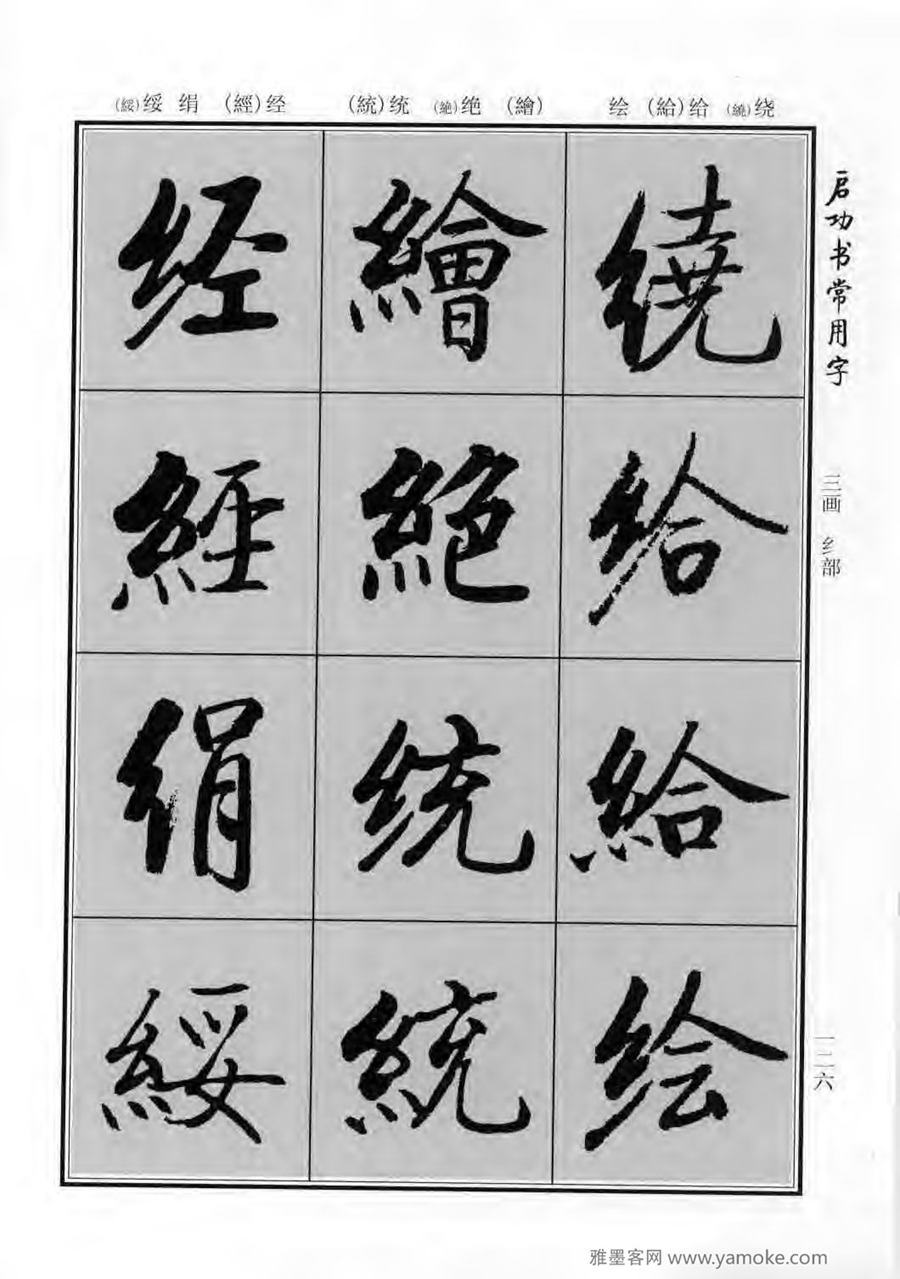 (綏)绥 绢 (經)经 (統)统 (絶)绝 (繪) 绘 (給)给 (繞)绕
启功书常用字
三画 纟部
一二六
繞
给
給
绘
繪
絶
统
統
经
經
绢
綏
雅墨客网 www.yamoke.com